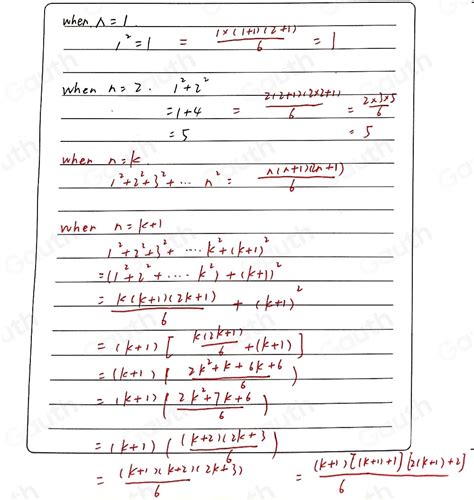 when n = 1.
1² = 1 = 1×(1+1)(2+1)/6 = 1
when n = 2. 1² + 2²
= 1+4 = 2(2+1)(2×2+1)/6 = 2×3×5/6
= 5 = 5
when n = k.
1²+2²+3²+ ... n² = n(n+1)(2n+1)/6
when n = k+1
1²+2²+3²+ .... k²+(k+1)²
= (1²+2²+ ..... k²) + (k+1)²
= k(k+1)(2k+1)/6 + (k+1)²
= (k+1) [ k(2k+1)/6 + (k+1) ]
= (k+1) ( 2k²+k+6k+6/6 )
= (k+1) ( 2k²+7k+6/6 )
= (k+1) ( (k+2)(2k+3/6 )
= (k+1)(k+2)(2k+3)/6 = (k+1)[(k+1)+1][2(k+1)+2]/6